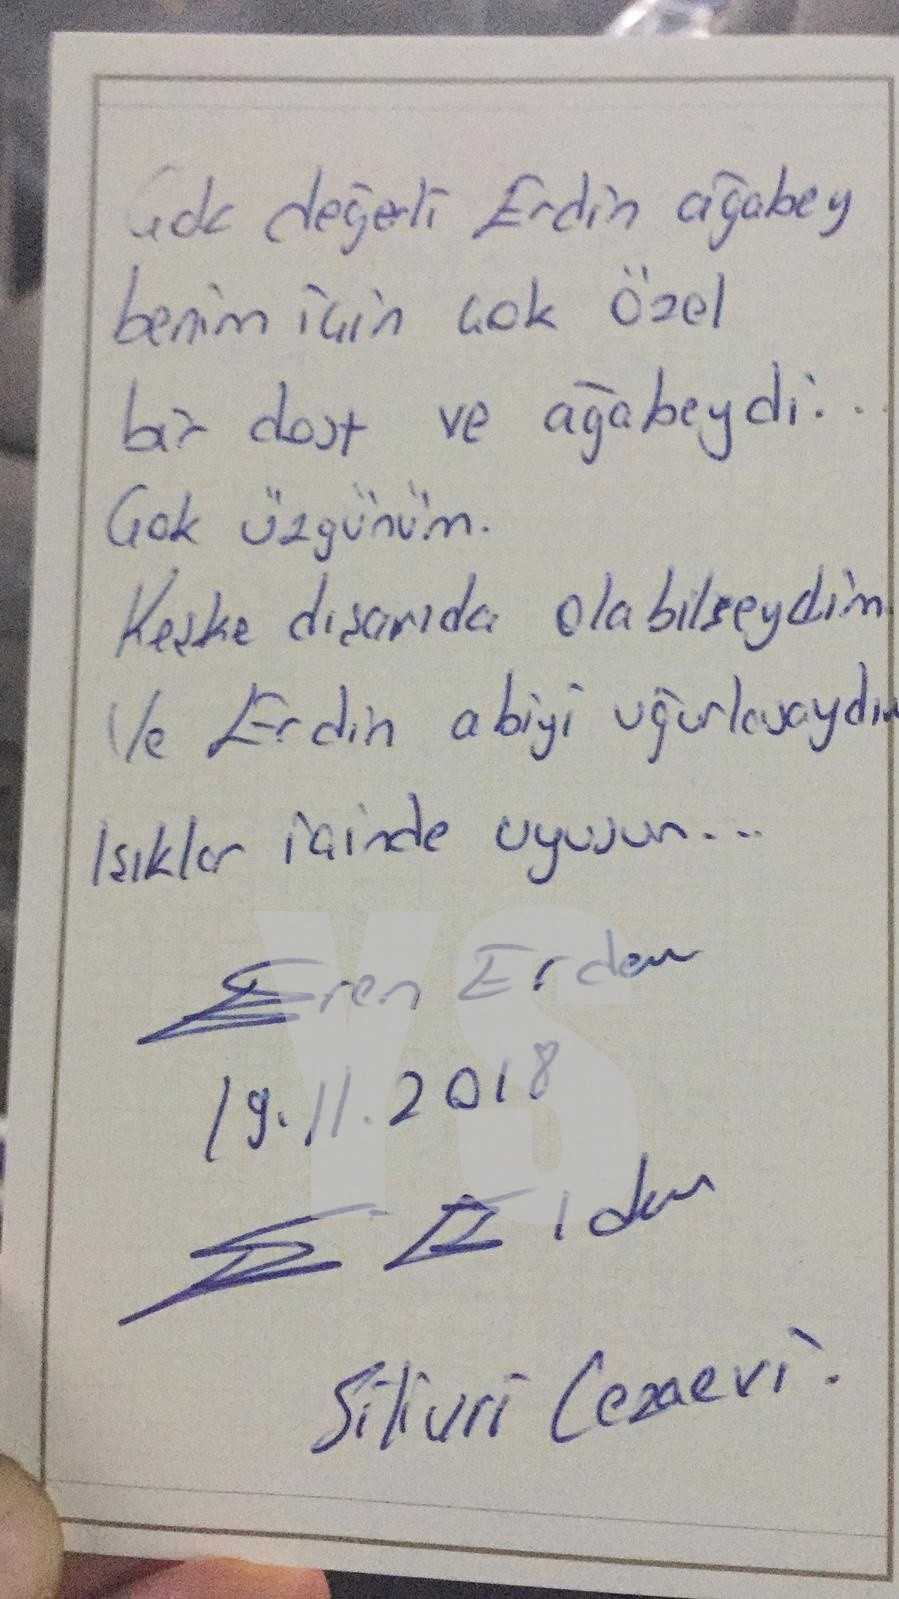 Çok değerli Erdin ağabey
benim için çok özel
bir dost ve ağabeydi...
Çok üzgünüm.
Keşke dışarıda olabilseydim
Ve Erdin abiyi uğurlasaydım
Işıklar içinde uyusun...
Eren Erdem
19.11.2018
YS
E. Erdem
Silivri Cezaevi.